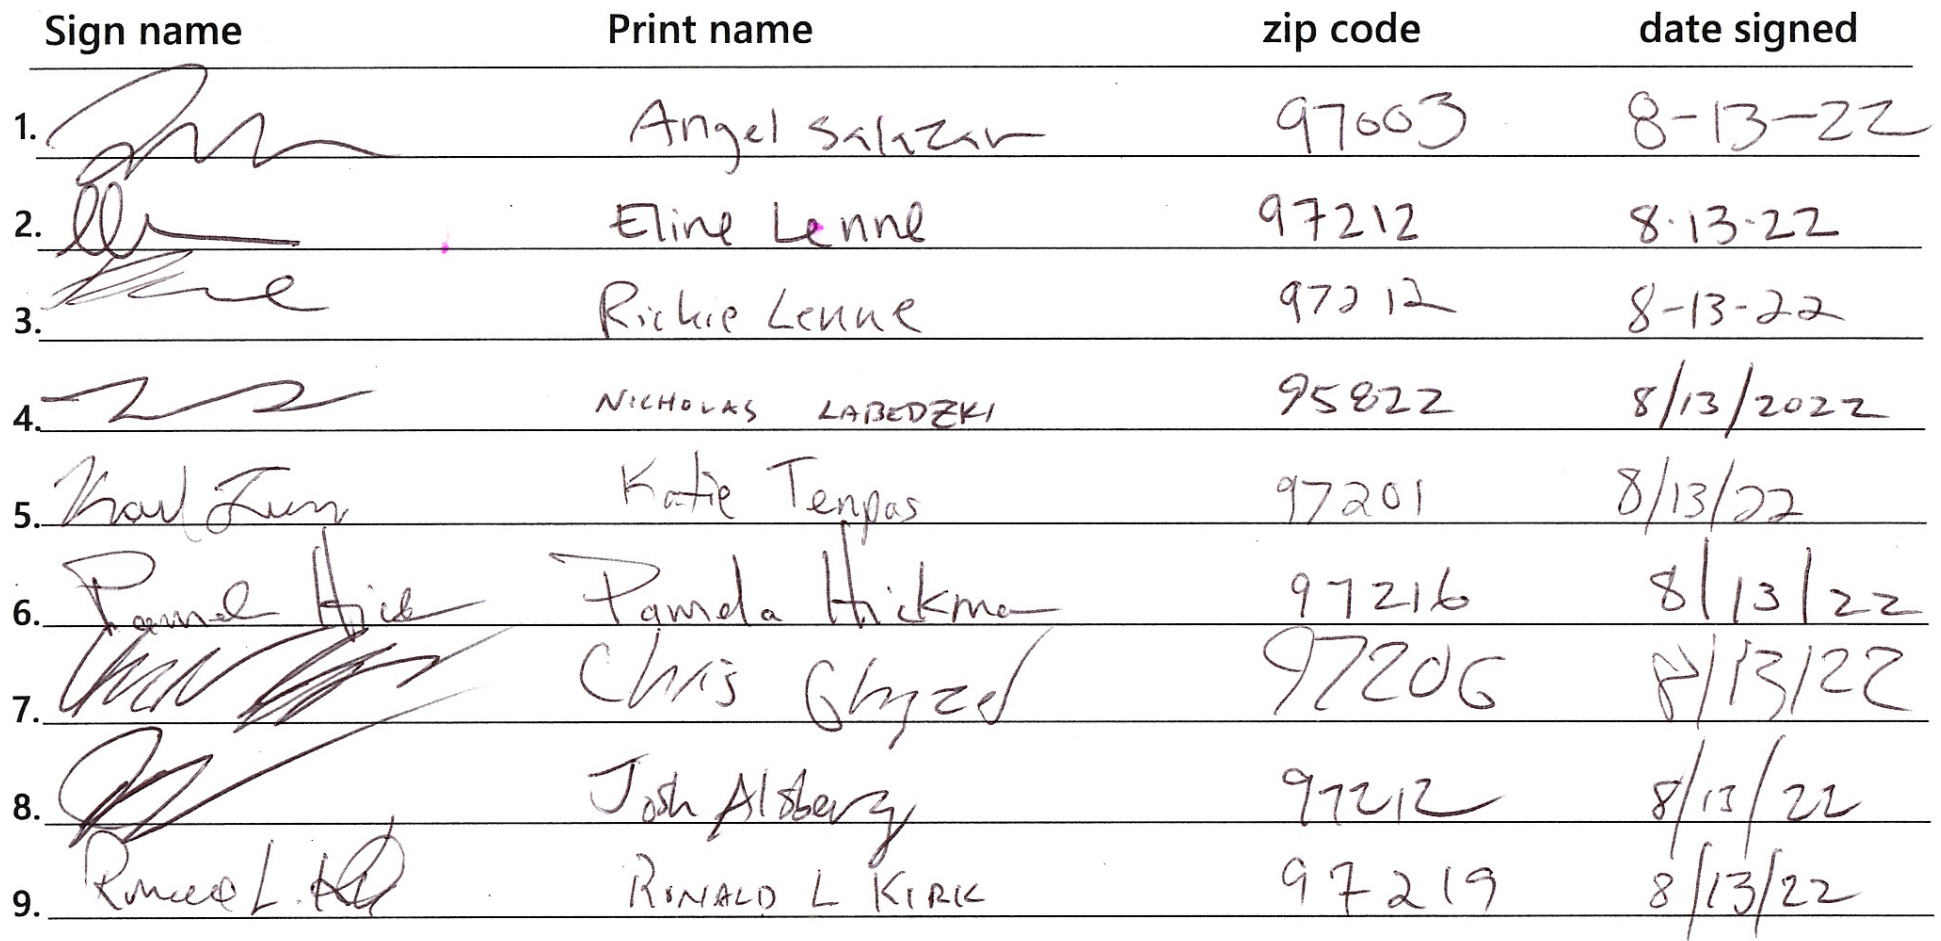 Sign name Print name zip code date signed
1. Angel Salazar 97003 8-13-22
2. Eline Lenne 97212 8.13.22
3. Rickie Lenne 97212 8-13-22
4. NICHOLAS LABEDZKI 95822 8/13/2022
5. Katie Tenpas 97201 8/13/22
6. Pamela Hickman 97216 8/13/22
7. Chris 97206 8/13/22
8. Josh Alsberg 97212 8/13/22
9. Ronald L. RONALD L KIRK 97219 8/13/22